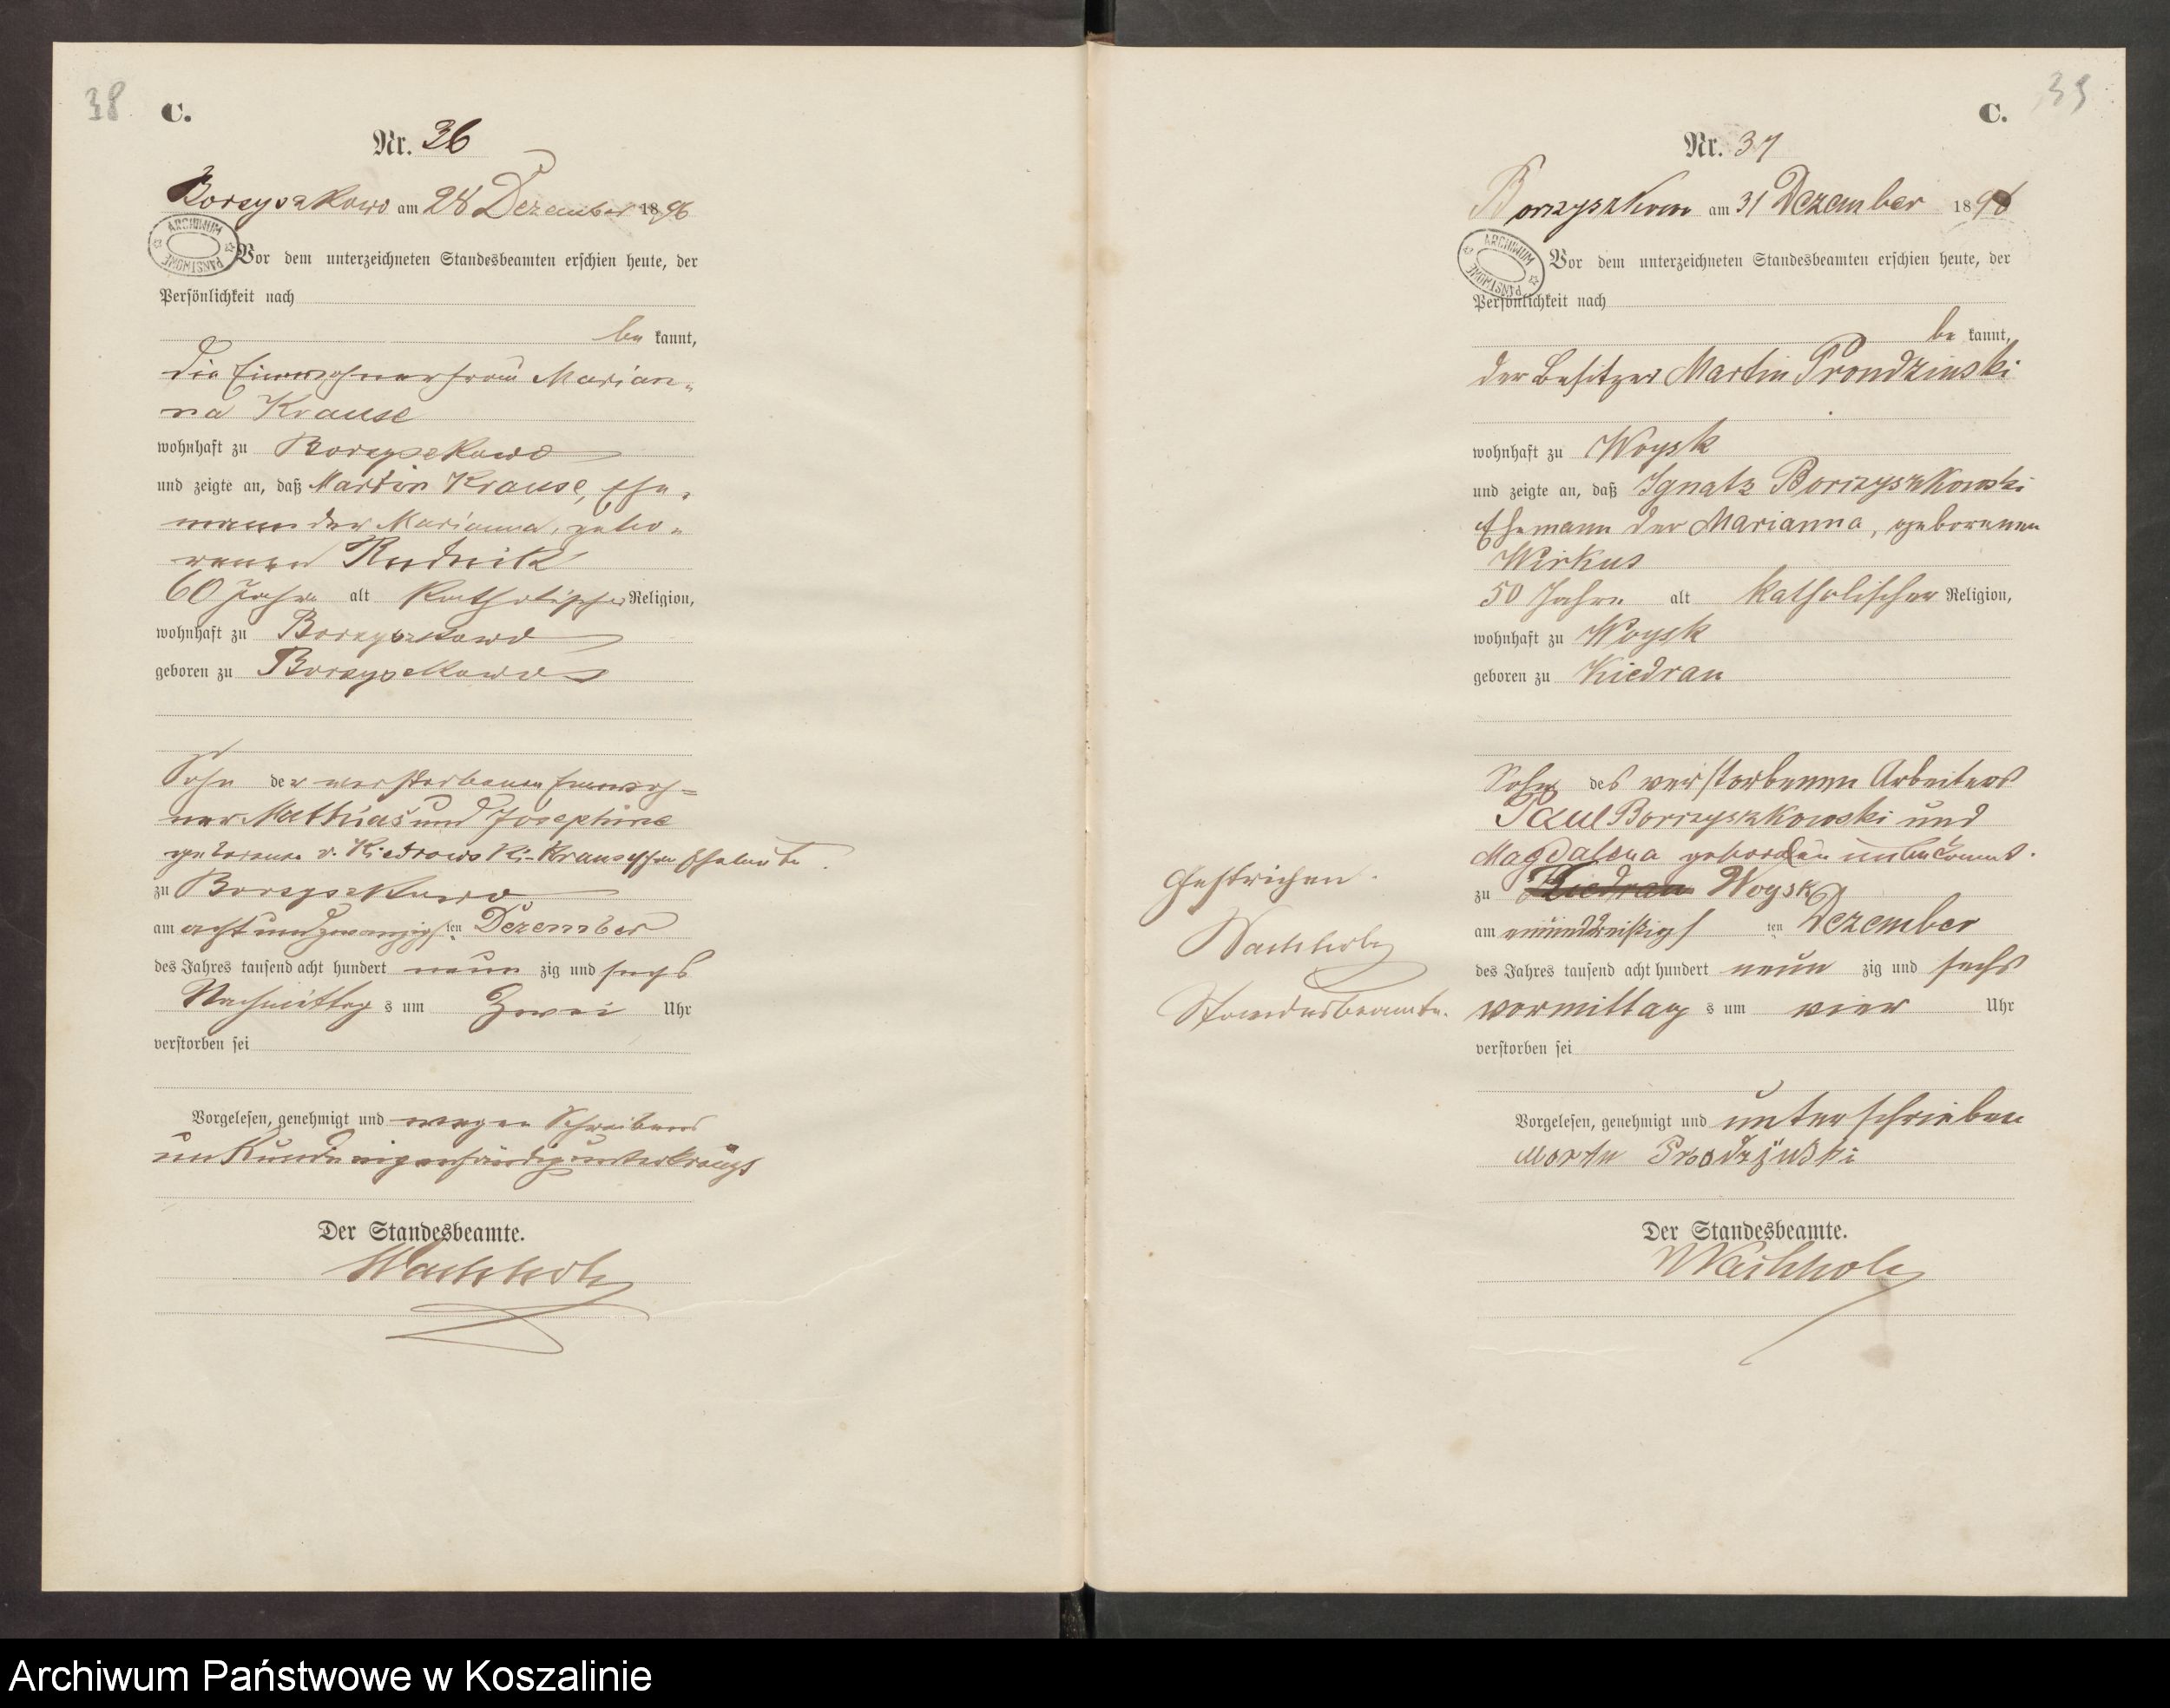 38
C.
Nr. 36
Borzyszkowo am 28 Dezember 1896
ARCHIWUM PAŃSTWOWE
Vor dem unterzeichneten Standesbeamten erschien heute, der
Persönlichkeit nach
be kannt,
die Einwohnerfrau Marian-
na Krause
wohnhaft zu Borzyszkowo
und zeigte an, daß Martin Krause, Ehe-
mann der Marianna, gebo-
renen Rudnik
60 Jahre alt katholischer Religion,
wohnhaft zu Borzyszkowo
geboren zu Borzyszkowo
Sohn der verstorbenen Einwoh-
ner Mathias und Josephine
geborene v. Kiedrowski-Krauseschen Eheleute.
zu Borzyszkowo
am achtundzwanzigsten Dezember
des Jahres tausend acht hundert neun zig und sechs
Nachmittag s um zwei Uhr
verstorben sei
Vorgelesen, genehmigt und wegen Schreibens
unkunde unterkreuzt
Der Standesbeamte.
Wachholz
39
C.
Nr. 37
Borzyszkowo am 31 Dezember 1896
ARCHIWUM PAŃSTWOWE
Vor dem unterzeichneten Standesbeamten erschien heute, der
Persönlichkeit nach
be kannt,
der Besitzer Martin Prondzinski
wohnhaft zu Woysk
und zeigte an, daß Ignatz Borrzyszkowski
Ehemann der Marianna, geborenen
Wirkus
50 Jahre alt katholischer Religion,
wohnhaft zu Woysk
geboren zu Kiedrau
Sohn des verstorbenen Arbeiters
Paul Borrzyszkowski und
Magdalena geborden unbekannt.
zu Kiedrau Woysk
am einunddreißigs ten Dezember
des Jahres tausend acht hundert neun zig und sechs
vormittag s um vier Uhr
verstorben sei
Gestrichen.
Wachholz
Standesbeamte.
Vorgelesen, genehmigt und unterschrieben
Martin Prondzinski
Der Standesbeamte.
Wachholz
Archiwum Państwowe w Koszalinie